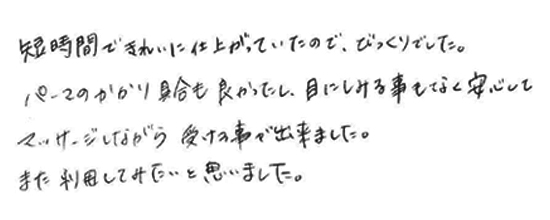 短時間できれいに仕上がっていたので、びっくりでした。
パーマのかかり具合も良かったし、目にしみる事もなく安心して
マッサージしながら受ける事が出来ました。
また利用してみたいと思いました。